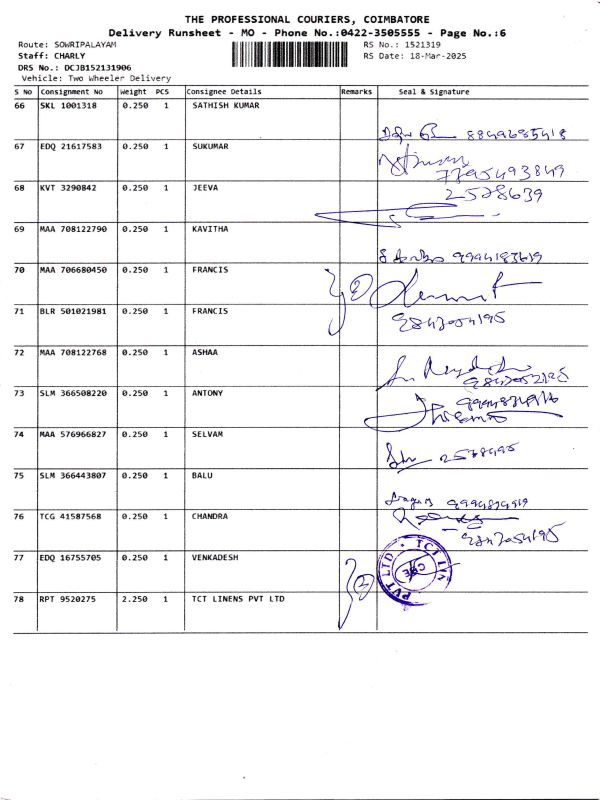 THE PROFESSIONAL COURIERS, COIMBATORE
Delivery Runsheet - MO - Phone No.:0422-3505555 - Page No.:6
Route: SOWRIPALAYAM RS No.: 1521319
Staff: CHARLY RS Date: 18-Mar-2025
DRS No.: DCJB152131906
Vehicle: Two Wheeler Delivery
S No Consignment No Weight PCS Consignee Details Remarks Seal & Signature
66 SKL 1001318 0.250 1 SATHISH KUMAR
8849685418
67 EDQ 21617583 0.250 1 SUKUMAR
7795493849
68 KVT 3290842 0.250 1 JEEVA 2578639
69 MAA 708122790 0.250 1 KAVITHA
9994183619
70 MAA 706680450 0.250 1 FRANCIS
71 BLR 501021981 0.250 1 FRANCIS
9847054195
72 MAA 708122768 0.250 1 ASHAA
73 SLM 366508220 0.250 1 ANTONY
74 MAA 576966827 0.250 1 SELVAM
2578495
75 SLM 366443807 0.250 1 BALU
76 TCG 41587568 0.250 1 CHANDRA
9847054195
77 EDQ 16755705 0.250 1 VENKADESH
78 RPT 9520275 2.250 1 TCT LINENS PVT LTD